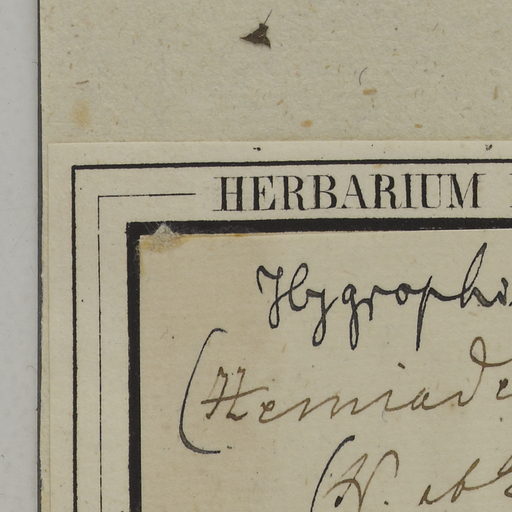 HERBARIUM
Hygrophi
(Hemiade
(N. ab